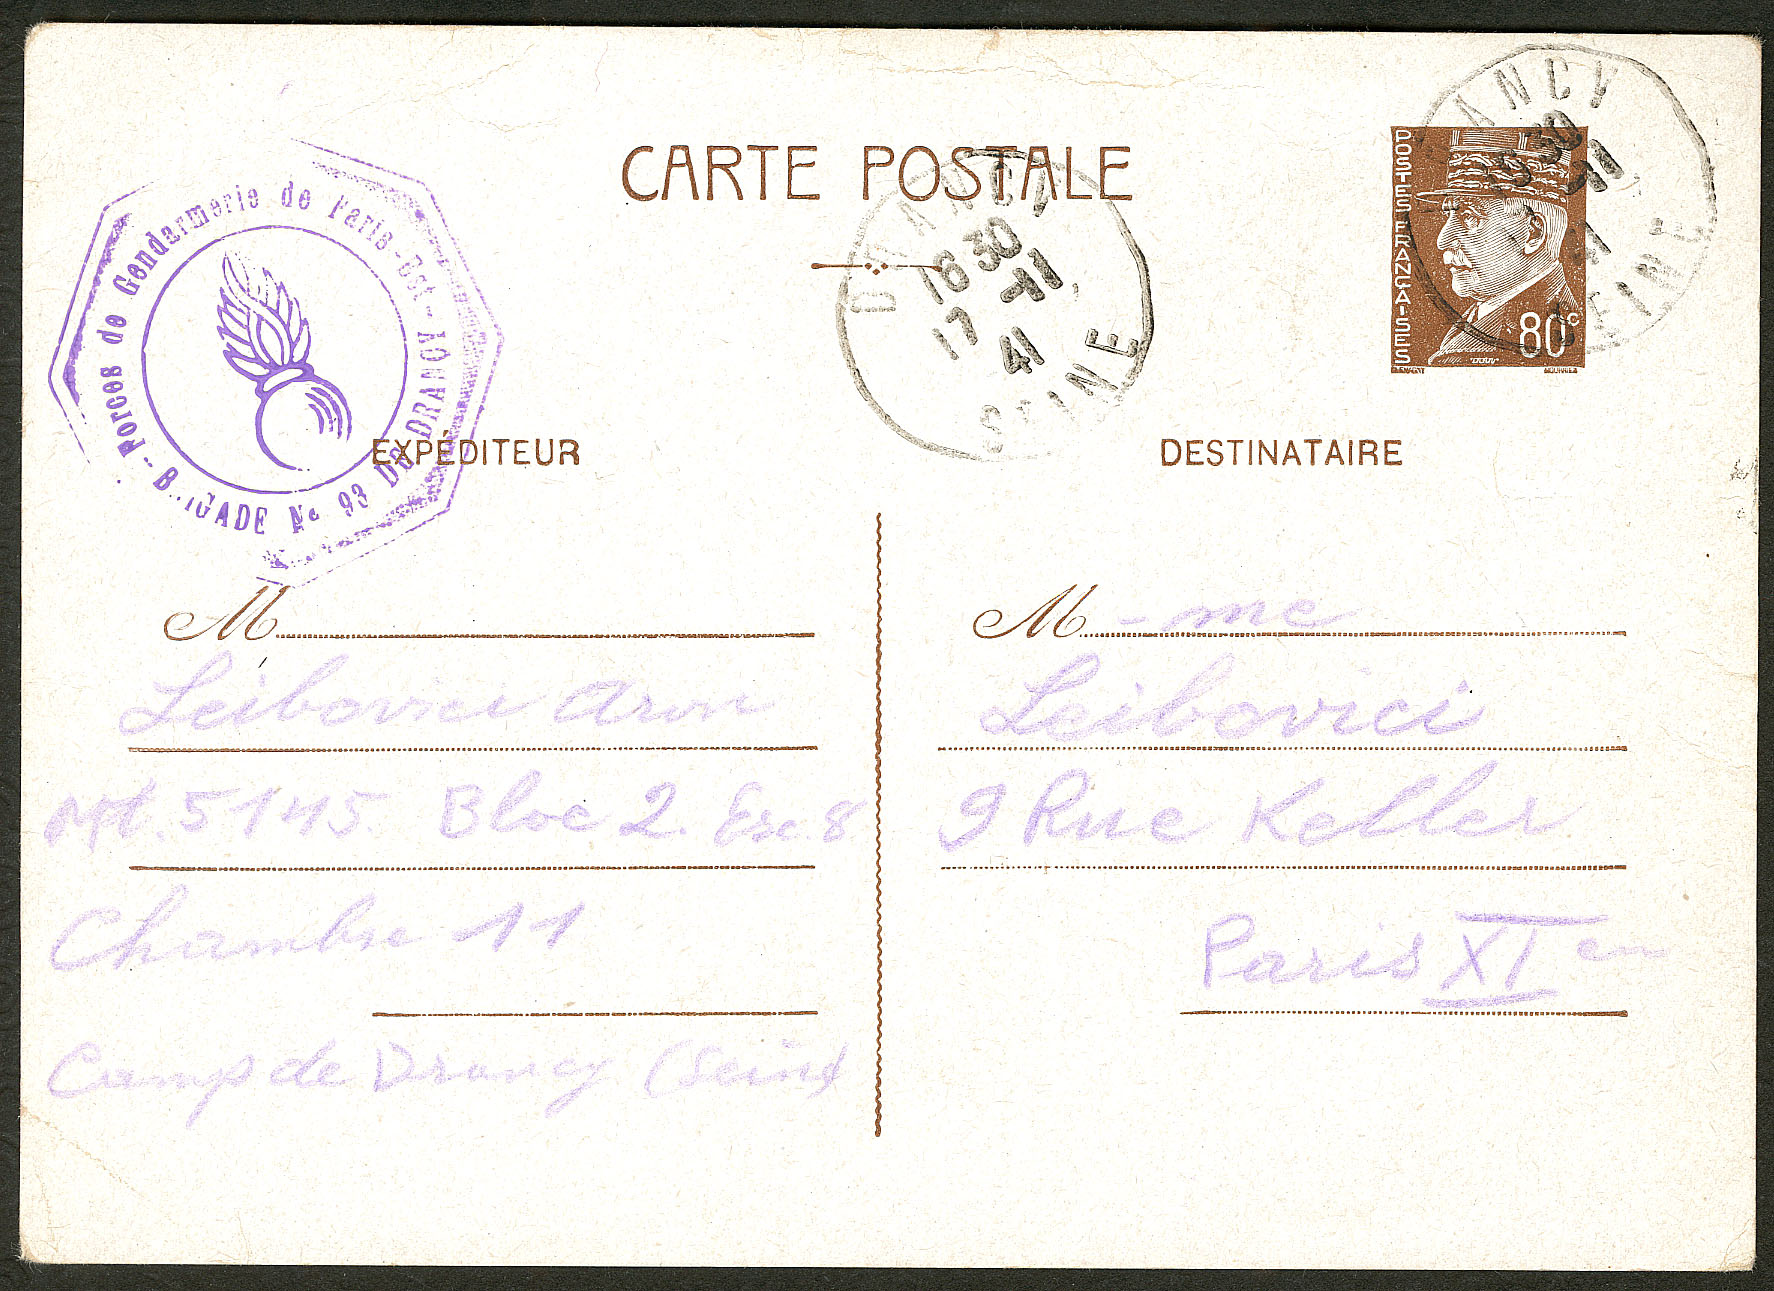 CARTE POSTALE
POSTES FRANÇAISES
80c
ANCY
SEINE
DRANCY
18 30
17 -11
41
SEINE
Forces de Gendarmerie de Paris-Est - BRIGADE No 93 De DRANCY
EXPÉDITEUR
M
Leibovici Aron
Mt. 5145. Bloc 2. Esc. 8
Chambre 11
Camp de Drancy (Seine)
DESTINATAIRE
M - me
Leibovici
9 Rue Keller
Paris XI em